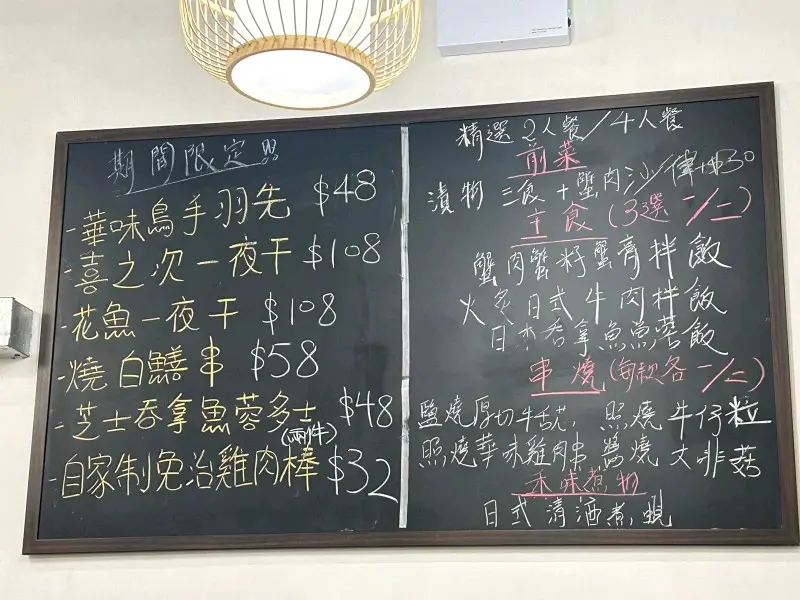 期間限定!!!
-華味鳥手羽先 $48
-喜之次一夜干 $108
-花魚一夜干 $108
-燒白鱔串 $58
-芝士吞拿魚蓉多士 $48
(兩件)
-自家制免治雞肉棒 $32
精選2人餐/4人餐
前菜
漬物三食+蟹肉沙律+$30
主食(3選一/二)
蟹肉蟹籽蟹膏拌飯
火炙日式牛肉拌飯
日本吞拿魚魚蓉飯
串燒(每款各一/二)
鹽燒厚切牛舌芯, 照燒牛仔粒
照燒華味雞肉串 醬燒大啡菇
本味煮物
日式清酒煮蜆